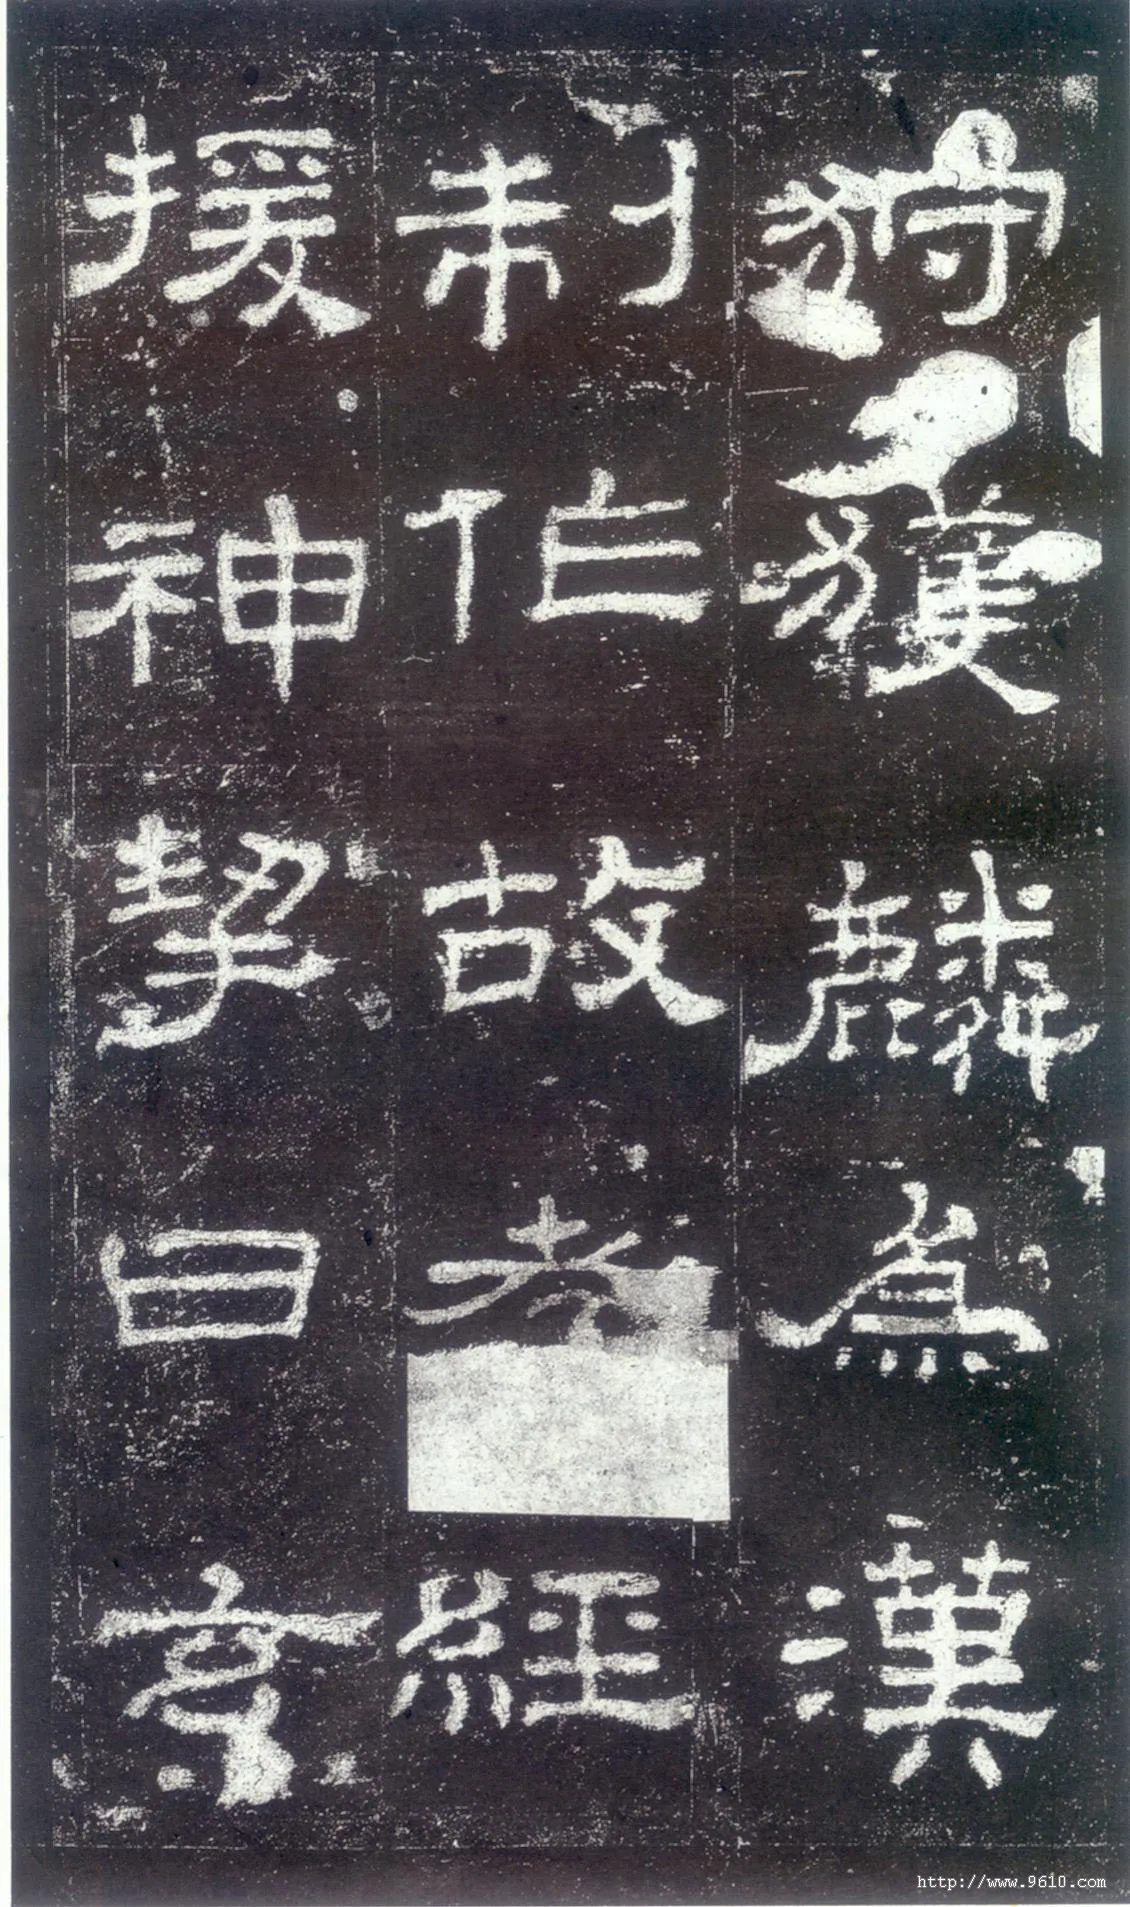 狩獲麟爲漢
制作故孝經
援神挈曰玄
http://www.9610.com